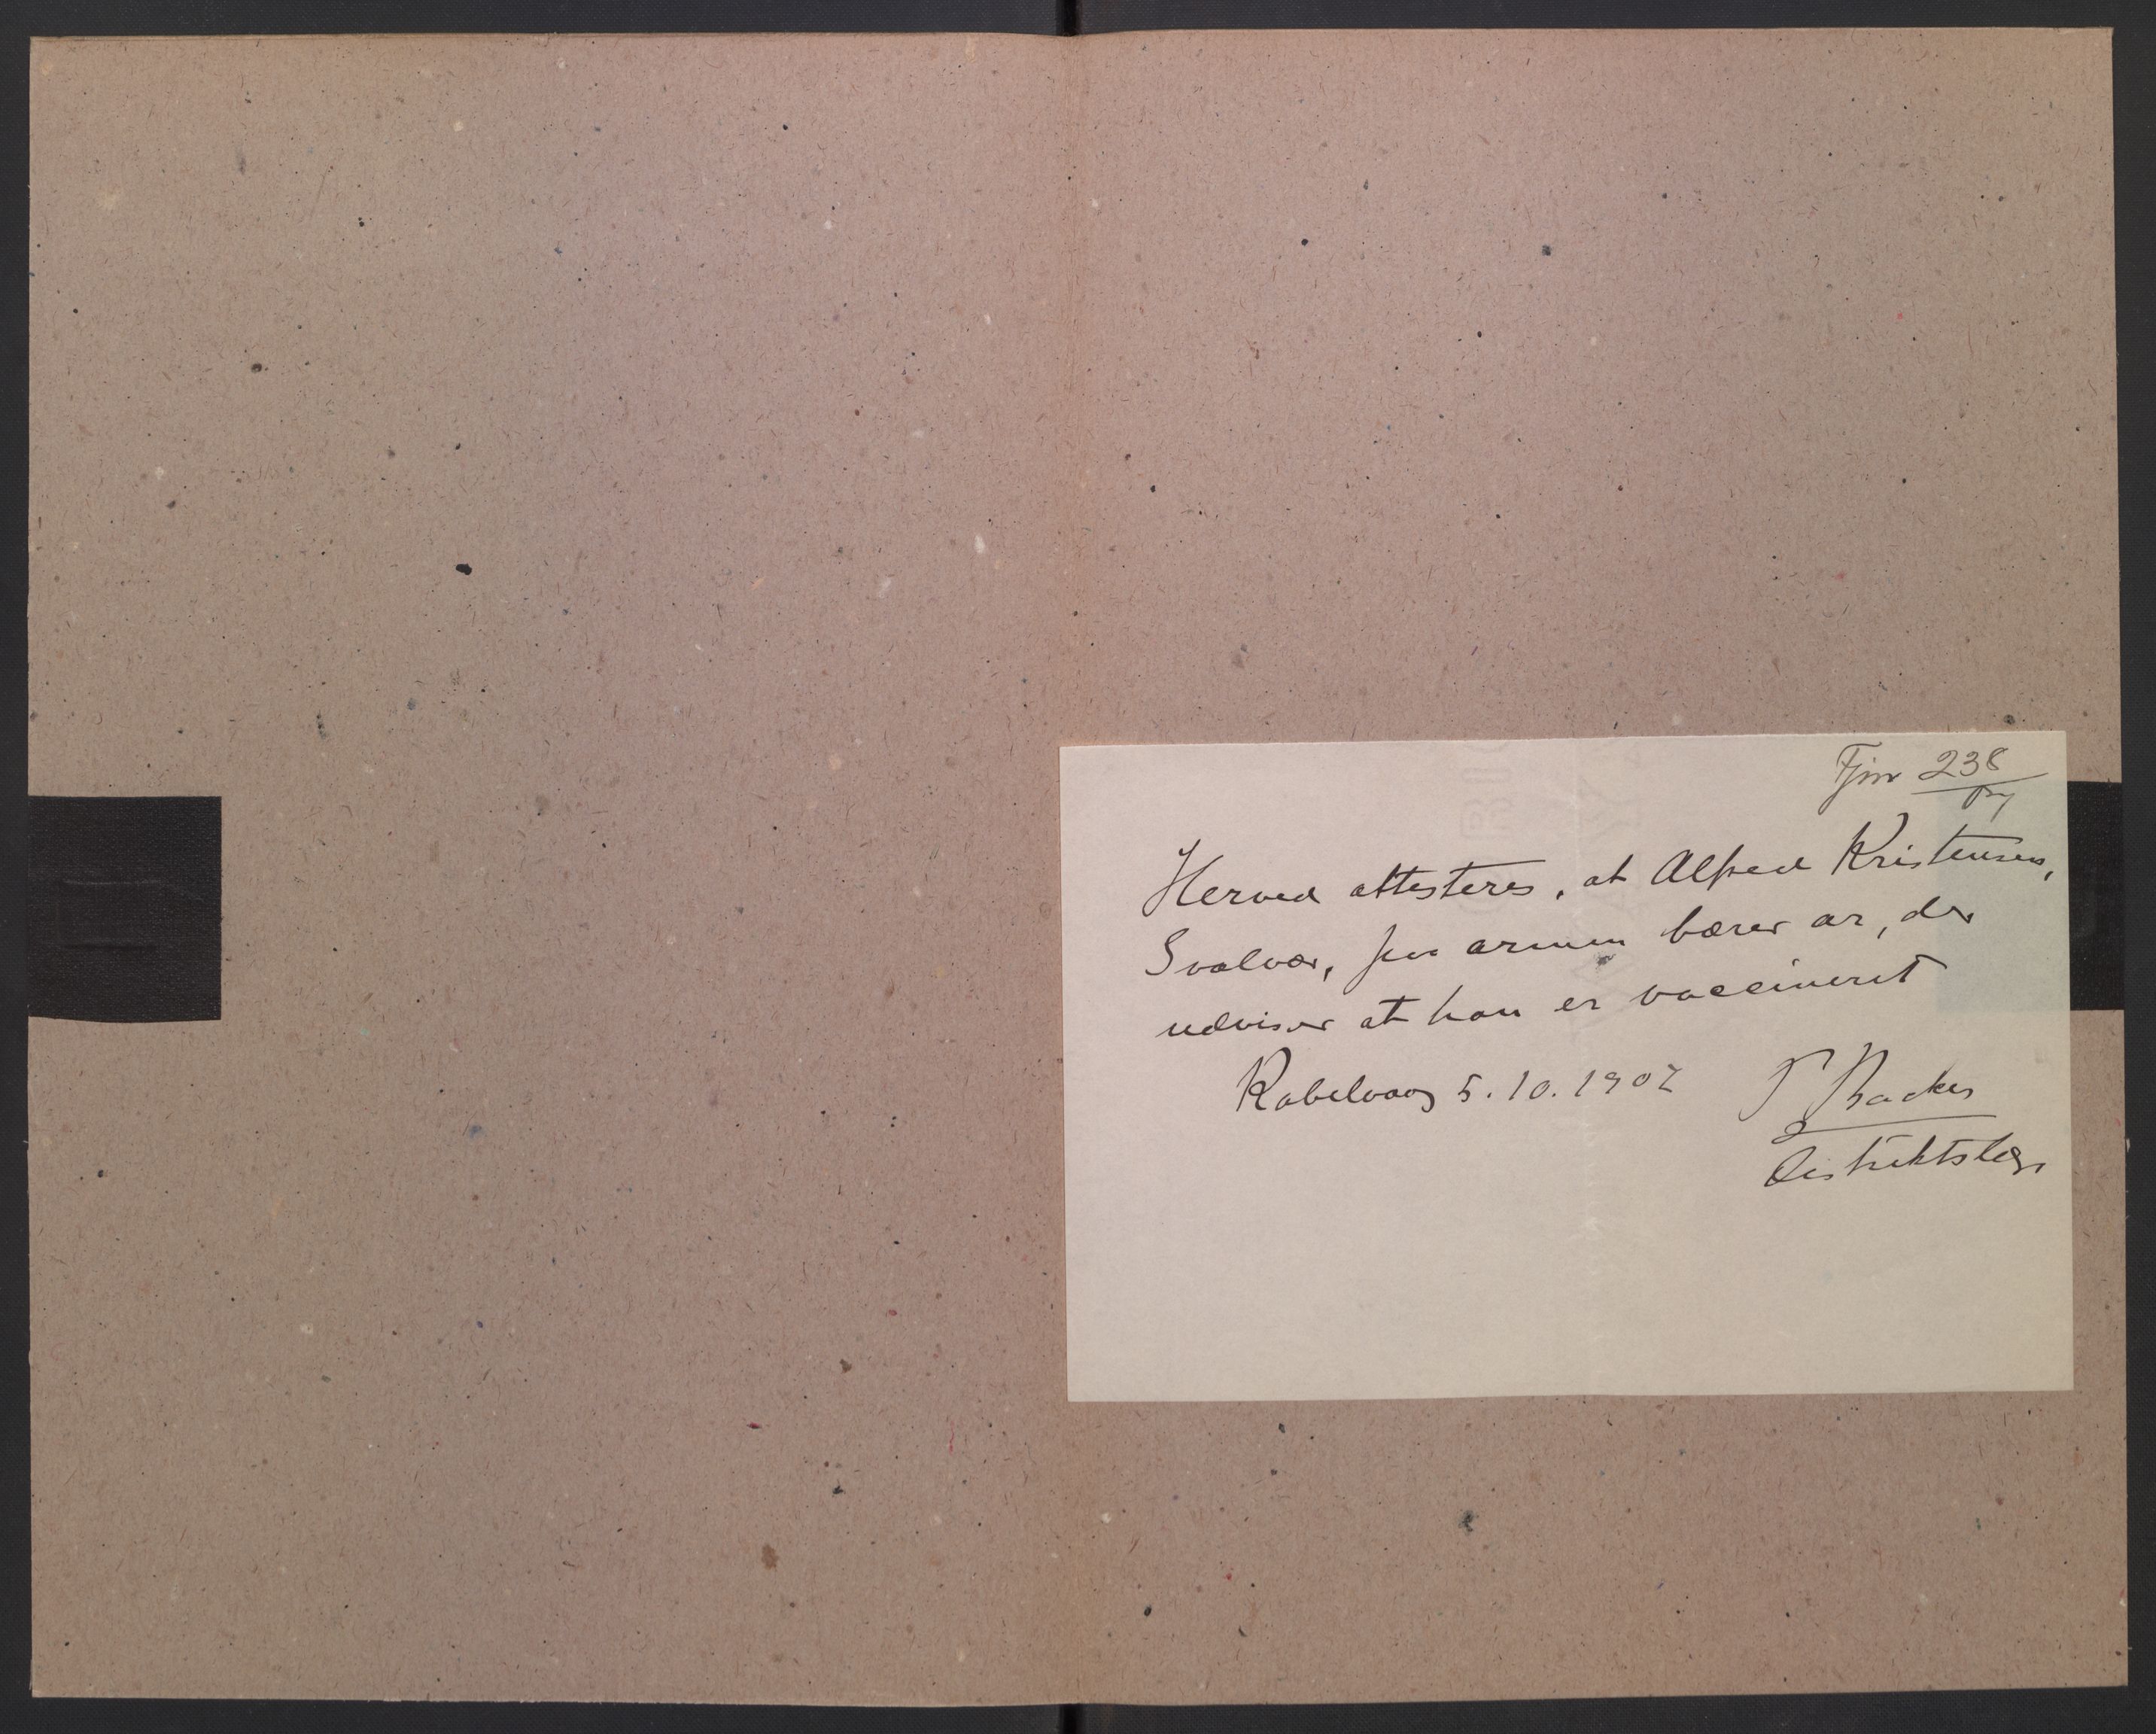 Fjnr 238
Herved attesteres, at Alfred Kristensen,
Svolvær, paa armen bærer ar, der
udviser at han er vaccineret
Kabelvaag 5.10.1907 P Backer
Distriktslæge